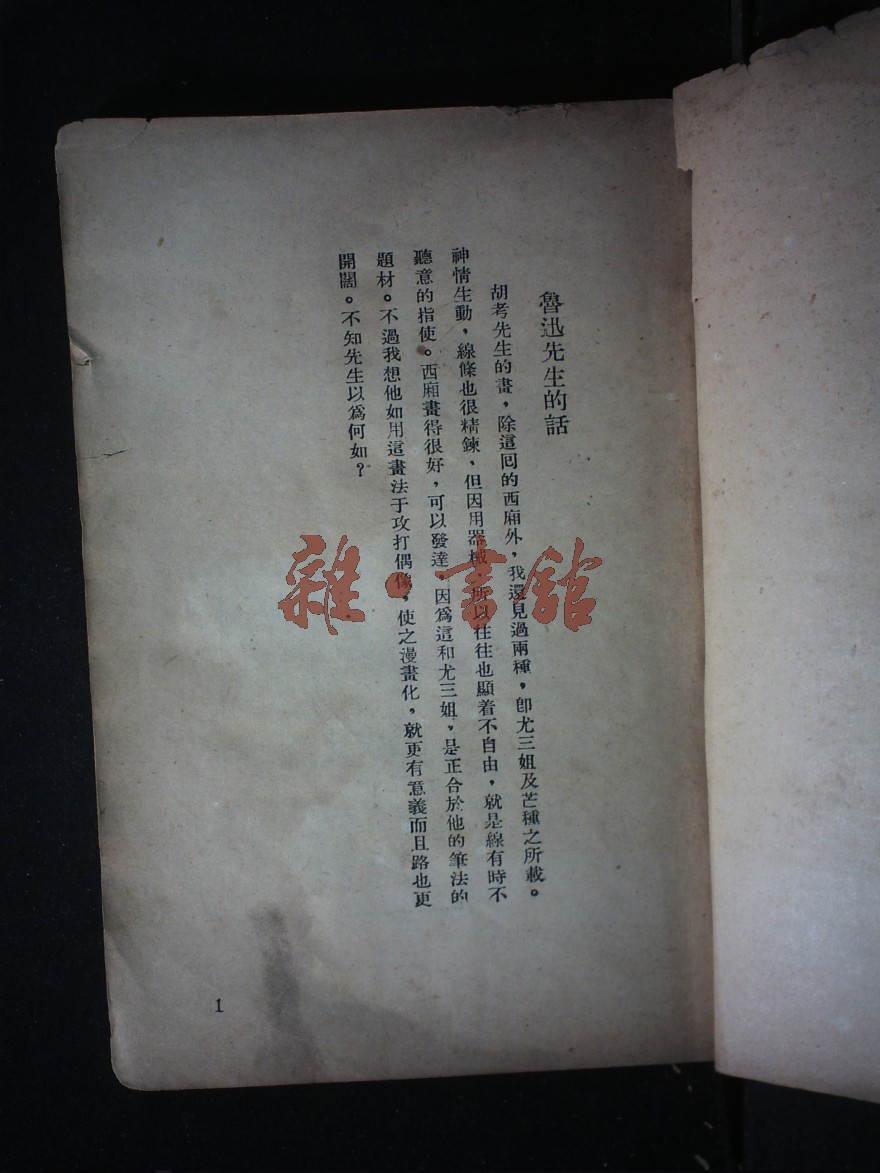 魯迅先生的話
胡考先生的畫，除這回的西廂外，我還見過兩種，卽尤三姐及芒種之所載。
神情生動，線條也很精鍊，但因用器械，所以往往也顯着不自由，就是線有時不
聽意的指使。西廂畫得很好，可以發達，因爲這和尤三姐，是正合於他的筆法的
題材。不過我想他如用這畫法于攻打偶像，使之漫畫化，就更有意義而且路也更
開闊。不知先生以爲何如？
1
雜·書館